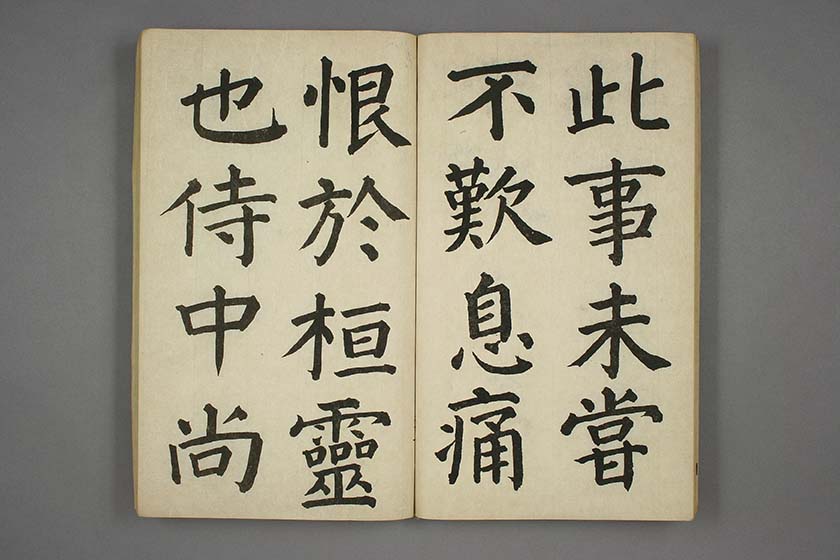 此事未甞
不歎息痛
恨於桓靈
也侍中尚